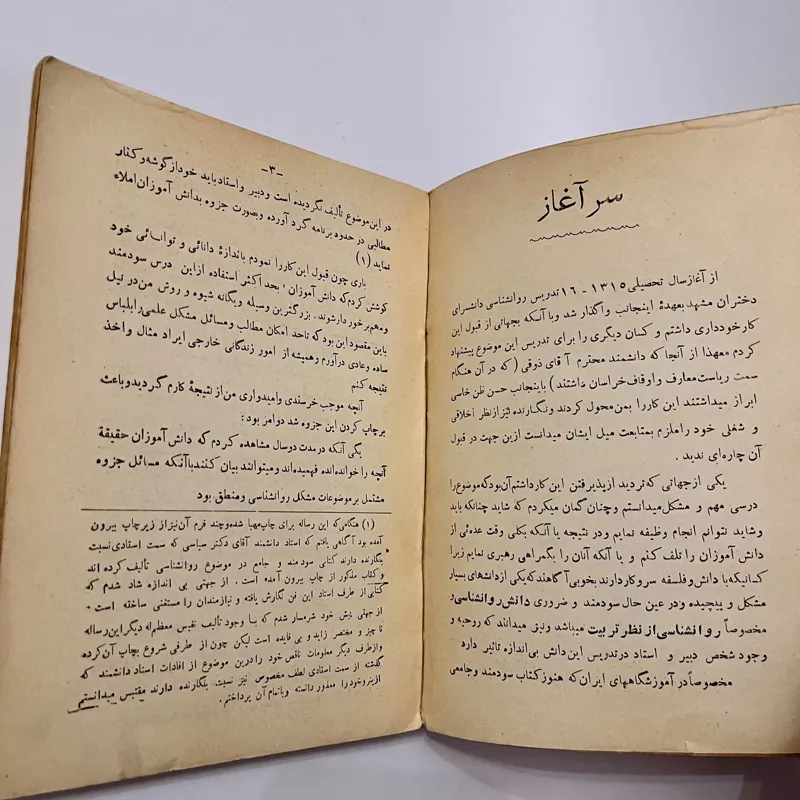 سر آغاز
از آغاز سال تحصیلی ۱۳۱۵ - ۱۶ تدریس روانشناسی دانشسرای
دختران مشهد بعهدهٔ اینجانب واگذار شد و با آنکه بجهاتی از قبول این
کار خودداری داشتم و کسان دیگری را برای تدریس این موضوع پیشنهاد
کردم معهذا از آنجا که دانشمند محترم آقای ذوقی (که در آن هنگام
سمت ریاست معارف و اوقاف خراسان داشتند) باینجانب حسن ظن خاصی
ابراز میداشتند این کار را بمن محول کردند و نگارنده نیز از نظر اخلاقی
و شغلی خود را ملزم بمتابعت میل ایشان میدانست از این جهت در قبول
آن چاره‌ای ندید .
یکی از جهاتی که تردید از پذیرفتن این کار داشتم آن بود که موضوع را
درسی مهم و مشکل میدانستم و چنان گمان میکردم که شاید چنانکه باید
و شاید نتوانم انجام وظیفه نمایم و در نتیجه یا آنکه بکلی وقت عده‌ئی از
دانش آموزان را تلف کنم و یا آنکه آنان را بگمراهی رهبری نمایم زیرا
کسانیکه با دانش و فلسفه سر و کار دارند بخوبی آگاهند که یکی از دانشهای بسیار
مشکل و پیچیده و در عین حال سودمند و ضروری دانش روانشناسی و
مخصوصاً روانشناسی از نظر تربیت میباشد و نیز میدانند که روحیه و
وجود شخص دبیر و استاد در تدریس این دانش بی‌اندازه تاثیر دارد
مخصوصاً در آموزشگاههای ایران که هنوز کتاب سودمند و جامعی
-۳-
در این موضوع تألیف نگردیده است و دبیر و استاد باید خود از گوشه و کنار
مطالبی در حدود برنامه گرد آورده و بصورت جزوه بدانش آموزان املاء
نماید (۱)
باری چون قبول این کار را نمودم باندازهٔ دانائی و توانائی خود
کوشش کردم که دانش آموزان ، بحد اکثر استفاده از این درس سودمند
و مهم برخوردار شوند . بزرگترین وسیله و یگانه شیوه و روش من در نیل
باین مقصود این بود که تا حد امکان مطالب و مسائل مشکل علمی را بلباس
ساده و عادی درآورم و همیشه از امور زندگانی خارجی ایراد مثال و اخذ
نتیجه کنم
آنچه موجب خرسندی و امیدواری من از نتیجهٔ کارم گردید و باعث
بر چاپ کردن این جزوه شد دو امر بود :
یکی آنکه در مدت دو سال مشاهده کردم که دانش آموزان حقیقة
آنچه را خوانده‌اند فهمیده‌اند و میتوانند بیان کنند با آنکه مسائل جزوه
مشتمل بر موضوعات مشکل روانشناسی و منطق بود
(۱) هنگامی که این رساله برای چاپ مهیا شده و چند فرم آن نیز از زیر چاپ بیرون
آمده بود آگاهی یافتم که استاد دانشمند آقای دکتر سیاسی که سمت استادی نسبت
بنگارنده دارند کتابی سودمند و جامع در موضوع روانشناسی تألیف کرده اند
و کتاب مذکور از چاپ بیرون آمده است . از جهتی بی اندازه شاد شدم که
کتابی از طرف استاد این فن نگارش یافته و نیازمندان را مستغنی ساخته است .
از جهتی پیش خود شرمسار شدم که با وجود تألیف نفیس معظم‌له دیگر این رساله
ناچیز و مختصر زاید و بی فایده است لیکن چون از طرفی شروع بچاپ آن کرده
و از طرف دیگر معلومات ناقص خود را در این موضوع از افادات استاد دانشمند که
گذشته از سمت استادی لطف مخصوص نیز نسبت بنگارنده دارند مقتبس میدانستم
از ینرو خود را معذور دانسته و باتمام آن پرداختم .